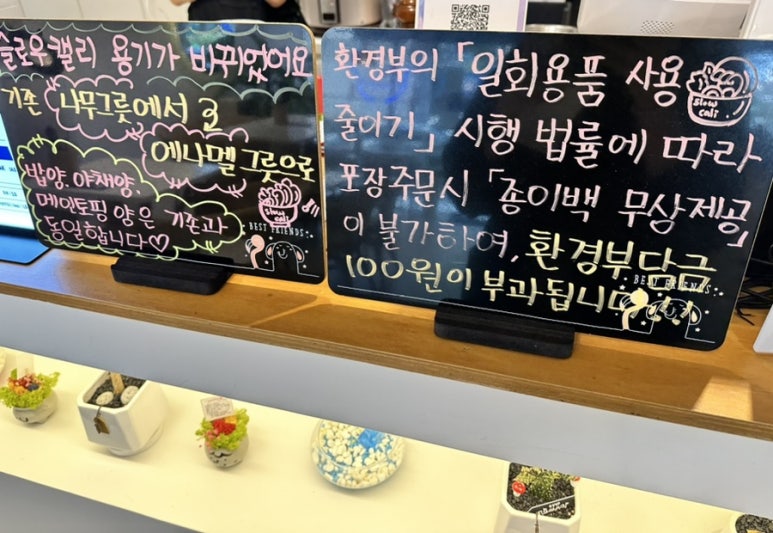 슬로우캘리 용기가 바뀌었어요
기존 나무그릇에서 로
에나멜 그릇으로
밥양, 야채양,
메인토핑 양은 기존과
동일합니다♡
slow cali
BEST FRIENDS
환경부의 「일회용품 사용
줄이기」 시행 법률에 따라
포장주문시 「종이백 무상제공」
이 불가하여, 환경부담금
100원이 부과됩니다
slow cali
BEST FRIENDS